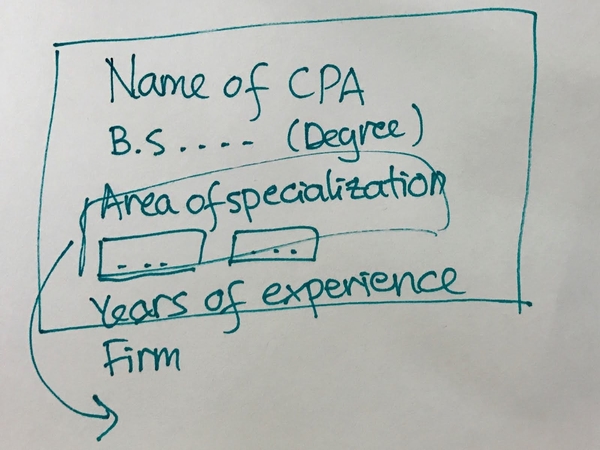 Name of CPA
B.S.... (Degree)
Area of specialization
... ...
Years of experience
Firm